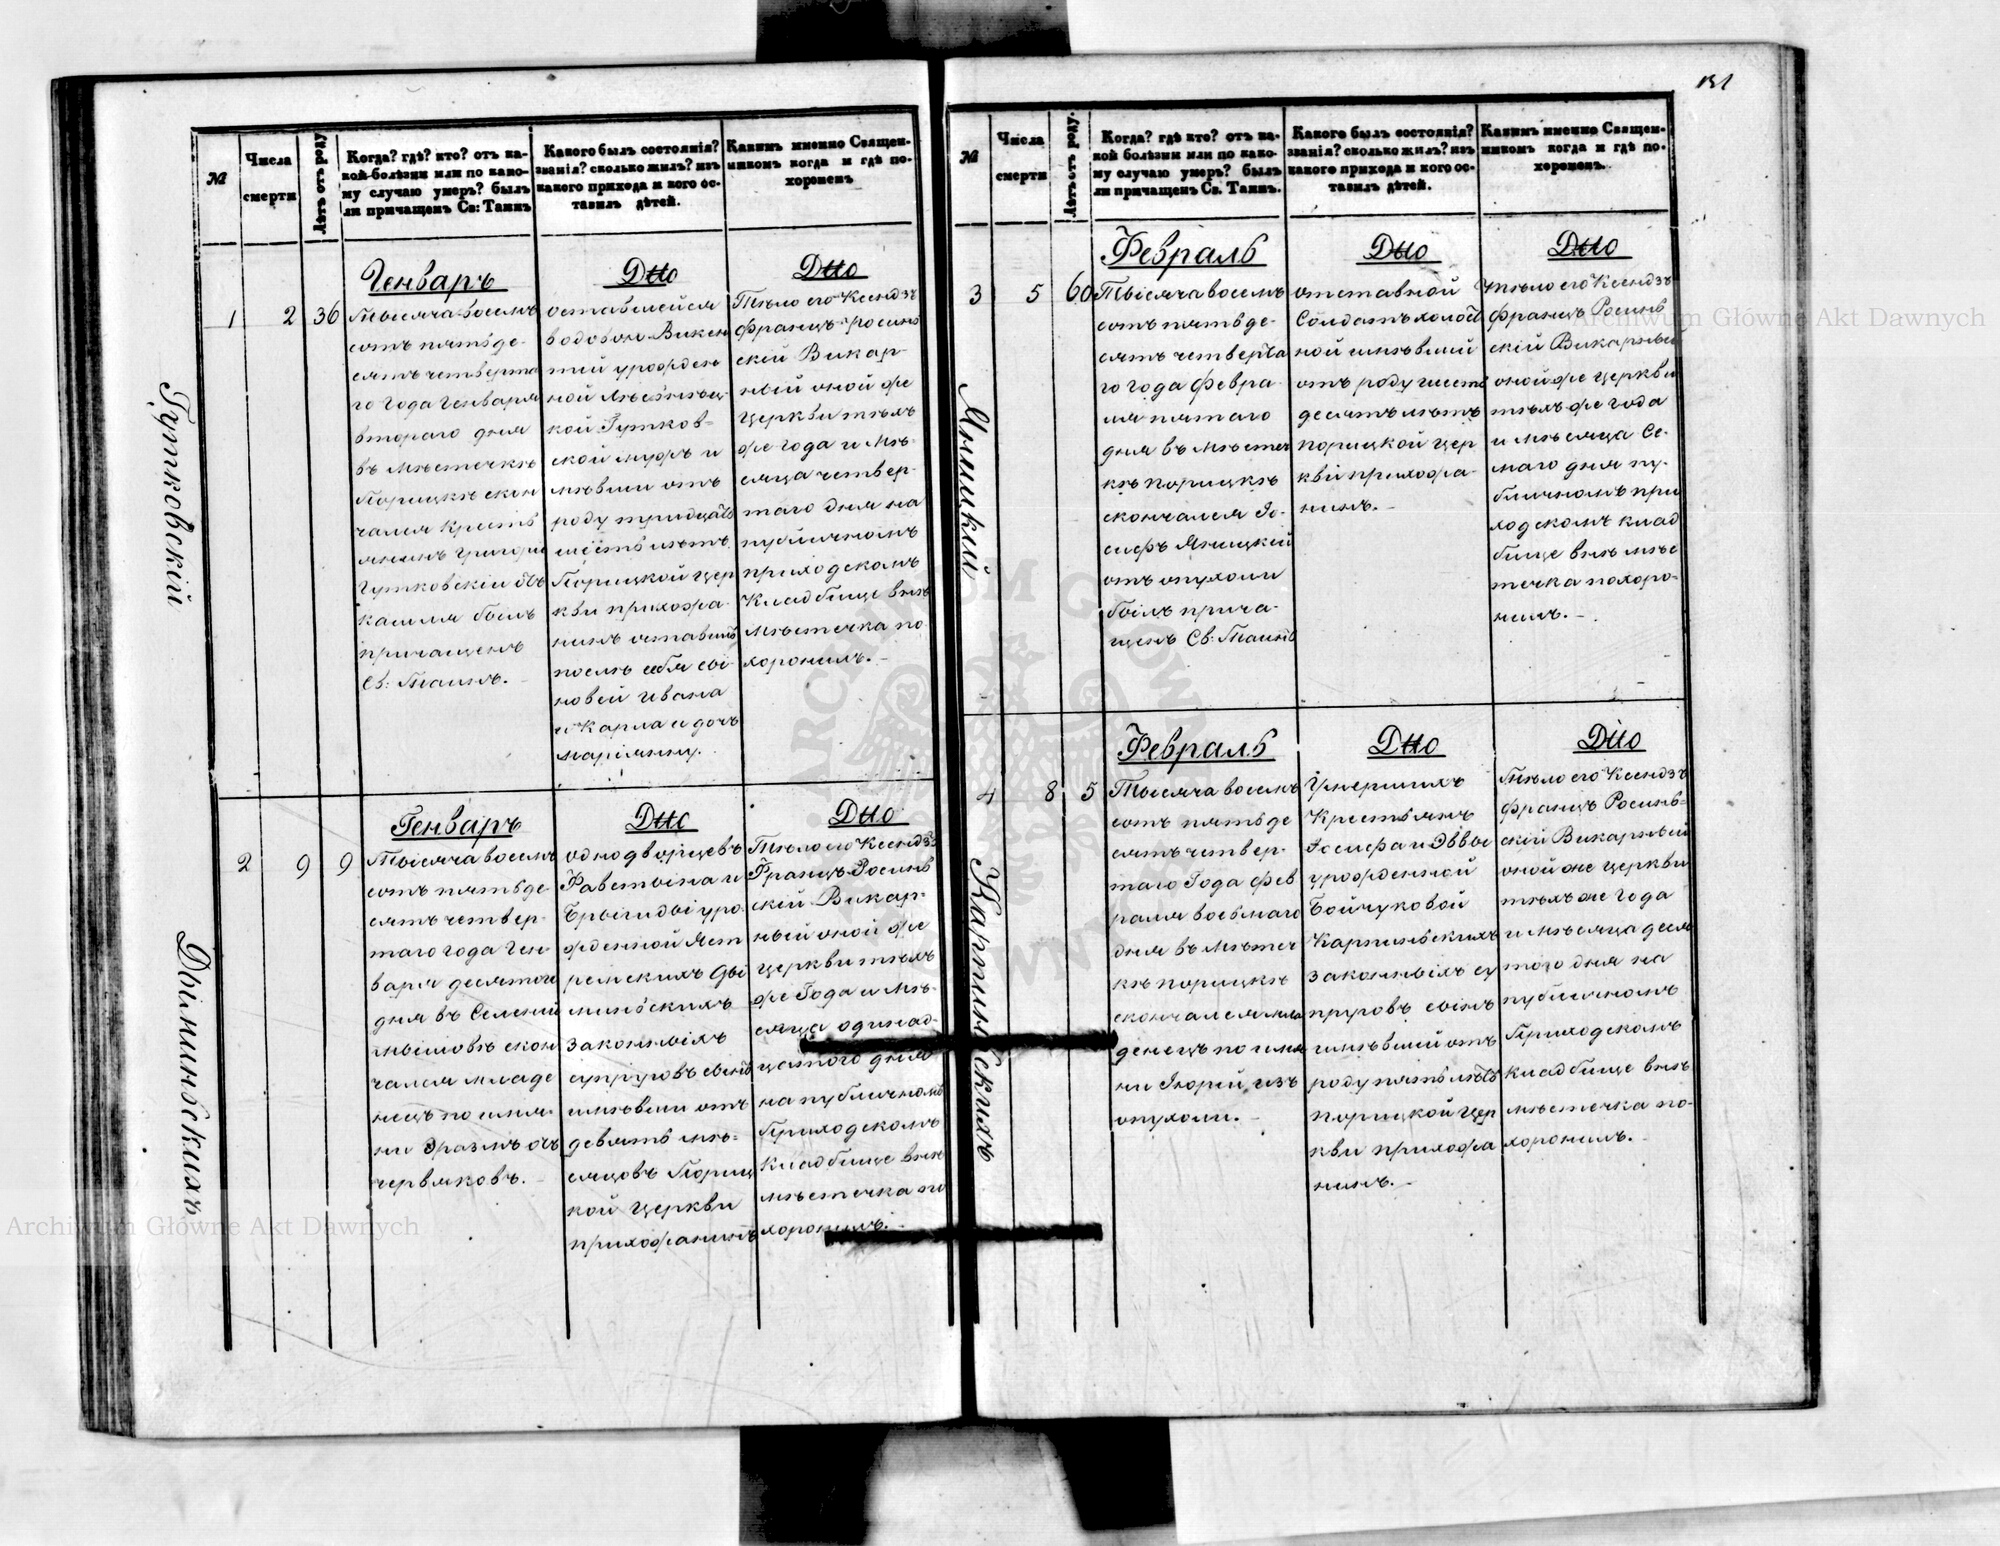 131
№
Числа
смерти
Лѣтъ отъ роду
Когда? гдѣ? кто? отъ ка-
кой болѣзни или по како-
му случаю умеръ? былъ
ли причащенъ Св: Таинъ
Какого былъ состоянія?
званія? сколько жилъ? изъ
какого прихода и кого ос-
тавилъ дѣтей.
Какимъ именно Священ-
никомъ когда и гдѣ по-
хороненъ
Гутковскій
1
2
36
Генварь
Тысяча восемь
сотъ пятьде-
сятъ четверта
го года Генваря
втораго дня
въ мѣстечкѣ
Порицкѣ скон
чался кресть
янинъ Григори
Гутковскій отъ
кашля былъ
причащенъ
Св: Таинъ.
Дтто
оставшейся
вдовою Викен
тій урожден
ной
кой Гутков-
ской мужъ и
мѣвши отъ
роду тридцать
шесть лѣтъ
Порицкой цер
кви прихожа-
нинъ оставивъ
послѣ себя сы-
новей Ивана
и Карла и дочь
Маріянну.
Дтто
Тѣло его Ксендзъ
Францъ Росинь
скій Викар-
ный оной же
Церкви тѣхъ
же года и мѣ-
сяца четвер-
таго дня на
публичномъ
приходскомъ
Кладбище внѣ
мѣстечка по
хоронилъ.-
Дылиньскихъ
2
9
9
Генварь
Тысяча восемь
сотъ пятьде
сятъ четвер-
таго года Ген-
варя десятаго
дня въ Селеніи
скон
чался младе
нецъ по име-
ни Эразмъ отъ
червяковъ.-
Дтто
однодворцевъ
Фавстына и
Брыгиды уро
жденной Яст
ремскихъ Ды
линьскихъ
законныхъ
супруговъ сынъ
имѣвши отъ
девять мѣ-
сяцовъ Пориц
кой Церкви
прихожанинъ
Дтто
Тѣло его Ксендзъ
Францъ Росинь
скій Викар-
ный оной же
Церкви тѣхъ
же Года и мѣ-
сяца одинад-
цатого дня
на публичномъ
Приходскомъ
Кладбище внѣ
мѣстечка по
хоронилъ.-
№
Числа
смерти
Лѣтъ отъ роду.
Когда? гдѣ кто? отъ ка-
кой болѣзни или по како-
му случаю умеръ? былъ
ли причащенъ Св. Таинъ.
Какого былъ состоянія?
званія? сколько жилъ? изъ
какого прихода и кого ос-
тавилъ дѣтей.
Какимъ именно Священ-
никомъ когда и гдѣ по-
хороненъ.
Яницкій
3
5
60
Февраль
Тысяча восемь
сотъ пятьде-
сятъ четверта
го года Февра-
ля пятаго
дня въ мѣстеч
кѣ Порицкѣ
скончался Іо-
сифъ Яницкій
отъ опухоли
былъ прича-
щенъ Св: Таинъ
Дтто
отставной
Солдатъ холост
ной имѣвшій
отъ роду шесть
десятъ лѣтъ
Порицкой цер
кви прихожа-
нинъ.-
Дтто
тѣло его Ксендзъ
Францъ Росинь
скій Викарный
оной же церкви
тѣхъ же года
и мѣсяца Се-
маго дня пу-
бличномъ при
ходскомъ клад
бище внѣ мѣс
течка похоро-
нилъ.-
Карпиньскихъ
4
8
5
Февраль
Тысяча восемь
сотъ пятьде
сятъ четвер-
таго Года фев
раля восьмаго
дня въ мѣстеч
кѣ Порицкѣ
скончался мла
денецъ по име
ни Іюрій изъ
опухоли.-
Дтто
Умершихъ
Крестьянъ
Іосифа и Эввы
урожденной
Бойчуковой
Карпиньскихъ
законныхъ су
пруговъ сынъ
имѣвшій отъ
роду пять лѣтъ
Порицкой цер
кви прихожа
нинъ.-
Дтто
Тѣло его Ксендзъ
Францъ Росинь-
скій Викарный
оной же церкви
тѣхъ же Года
и мѣсяца деся
таго дня на
публичномъ
Приходскомъ
Кладбище внѣ
мѣстечка по-
хоронилъ.-
Archiwum Główne Akt Dawnych
Archiwum Główne Akt Dawnych